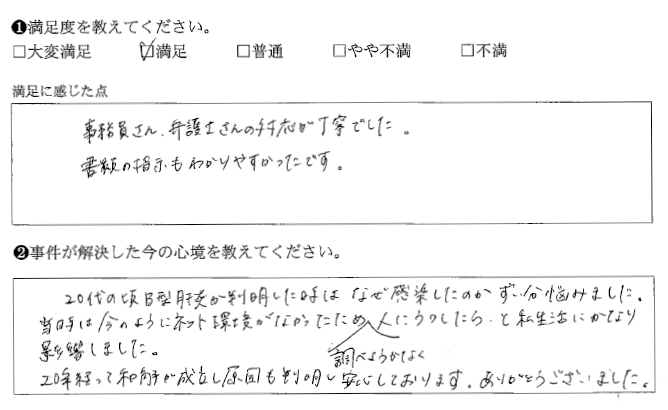 ❶満足度を教えてください。
□大変満足 ☑満足 □普通 □やや不満 □不満
満足に感じた点
事務員さん、弁護士さんの対応が丁寧でした。
書類の指示もわかりやすかったです。
❷事件が解決した今の心境を教えてください。
20代の頃B型肝炎が判明した時は なぜ感染したのか ずい分悩みました。
当時は今のようにネット環境がなかったため 調べようがなく 人にうつしたら、と私生活にかなり
影響しました。
20年経って和解が成立し原因も判明し安心しております。ありがとうございました。